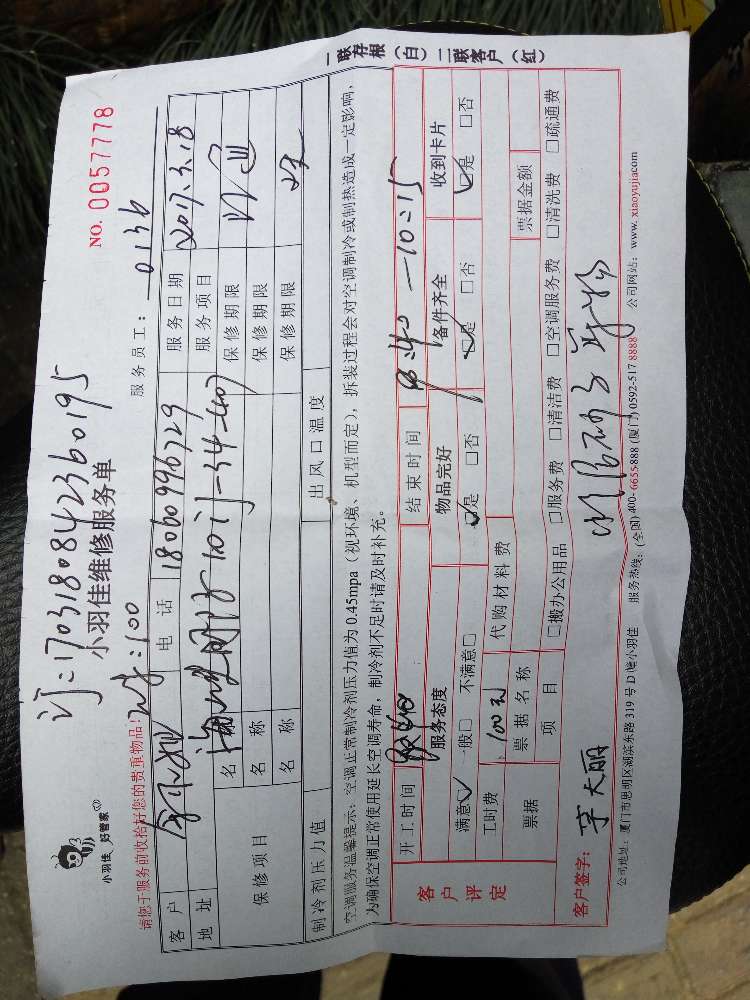 订:1703180842360195
小羽佳维修服务单
NO. 0057778
小羽佳 好管家
请您于服务前收拾好您的贵重物品!
=100
服务员工: 0136
客户
电话 18060996729
服务日期 2017.3.18
地址
服务项目
保修项目
名称
保修期限
名称
保修期限
名称
保修期限
制冷剂压力值
出风口温度
空调服务温馨提示:空调正常制冷剂压力值为0.45mpa(视环境、机型而定),拆装过程会对空调制冷或制热造成一定影响,
为确保空调正常使用延长空调寿命,制冷剂不足时请及时补充。
一联存根(白)二联客户(红)
客户评定
开工时间
结束时间
—10:15
服务态度
物品完好
备件齐全
收到卡片
满意☑ 一般□ 不满意□
☑是 □否
☑是 □否
☑是 □否
工时费 100元
代购材料费
票据
票据名称
票据金额
项目
□搬办公用品 □服务费 □清洁费 □空调服务费 □清洗费 □疏通费
客户签字:
公司地址:厦门市思明区湖滨东路319号D幢小羽佳 服务热线:(全国)400-6655-888 (厦门)0592-517 8888 公司网站:www.xiaoyujia.com